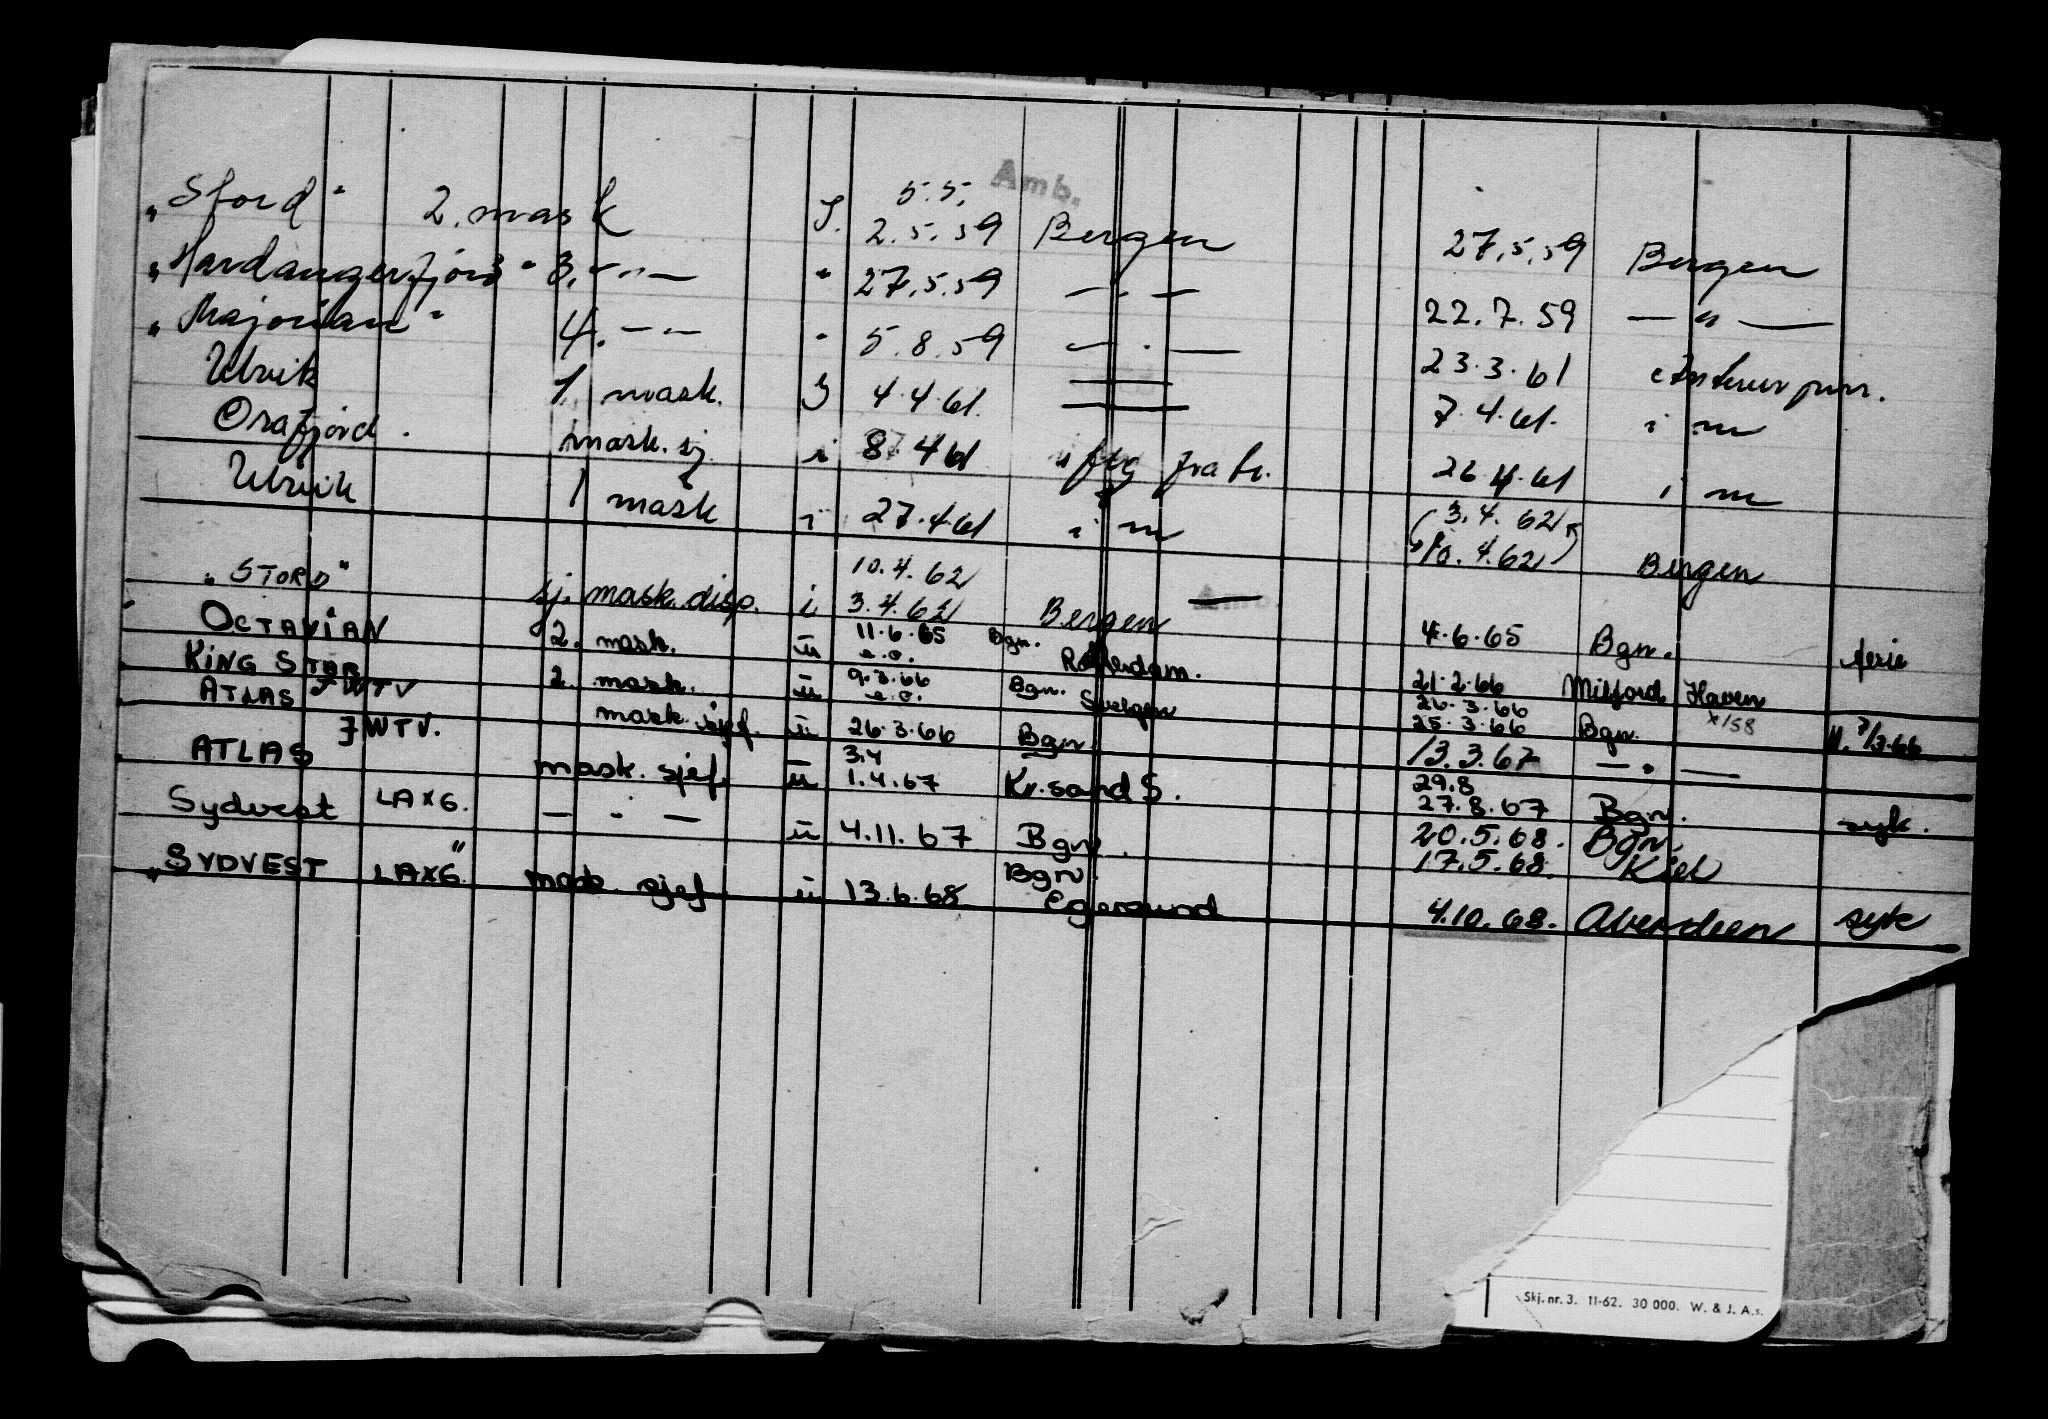 Amb.
„Stord" 2. mask I. 5.5. 2.5.59 Bergen 27.5.59 Bergen
„Hardangerfjord" 3. —"— " 27.5.59 —"— 22.7.59 —"—
„Majorian" 4. —"— " 5.8.59 —"— 23.3.61
Ulvik 1 mask. I 4.4.61. 7.4.61. i m
Osafjord. mask. sj. i 8.4.61 fra 26.4.61 i m
Ulvik 1 mask i 27.4.61 i m 3.4.62 10.4.62 Bergen
Amb.
„STORD" sj. mask. disp. i 10.4.62 3.4.62 Bergen — 4.6.65 Bgn. ferie
OCTAVIAN 2. mask. u 11.6.65 e.o. Bgn. Rotterdam. 21.2.66 Milford Haven
KING STAR 2. mask. u 9.3.66 e.o. Bgn. Svelgen 26.3.66 25.3.66 Bgn.
x/58
ATLAS JWTV mask. sjef. u 26.3.66 Bgn 13.3.67 —"—
ATLAS JWTV. mask. sjef. u 3.4 1.4.67 Kr.sand S. 29.8 27.8.67 Bgn. syk.
Sydvest LAXG. —"— u 4.11.67 Bgn. 20.5.68. Bgn. 17.5.68. Kiel
„SYDVEST LAXG" mask. sjef. u 13.6.68 Bgn. Egersund 4.10.68. Aberdeen syk
Skj. nr. 3. 11-62. 30 000. W. & J. A.s.